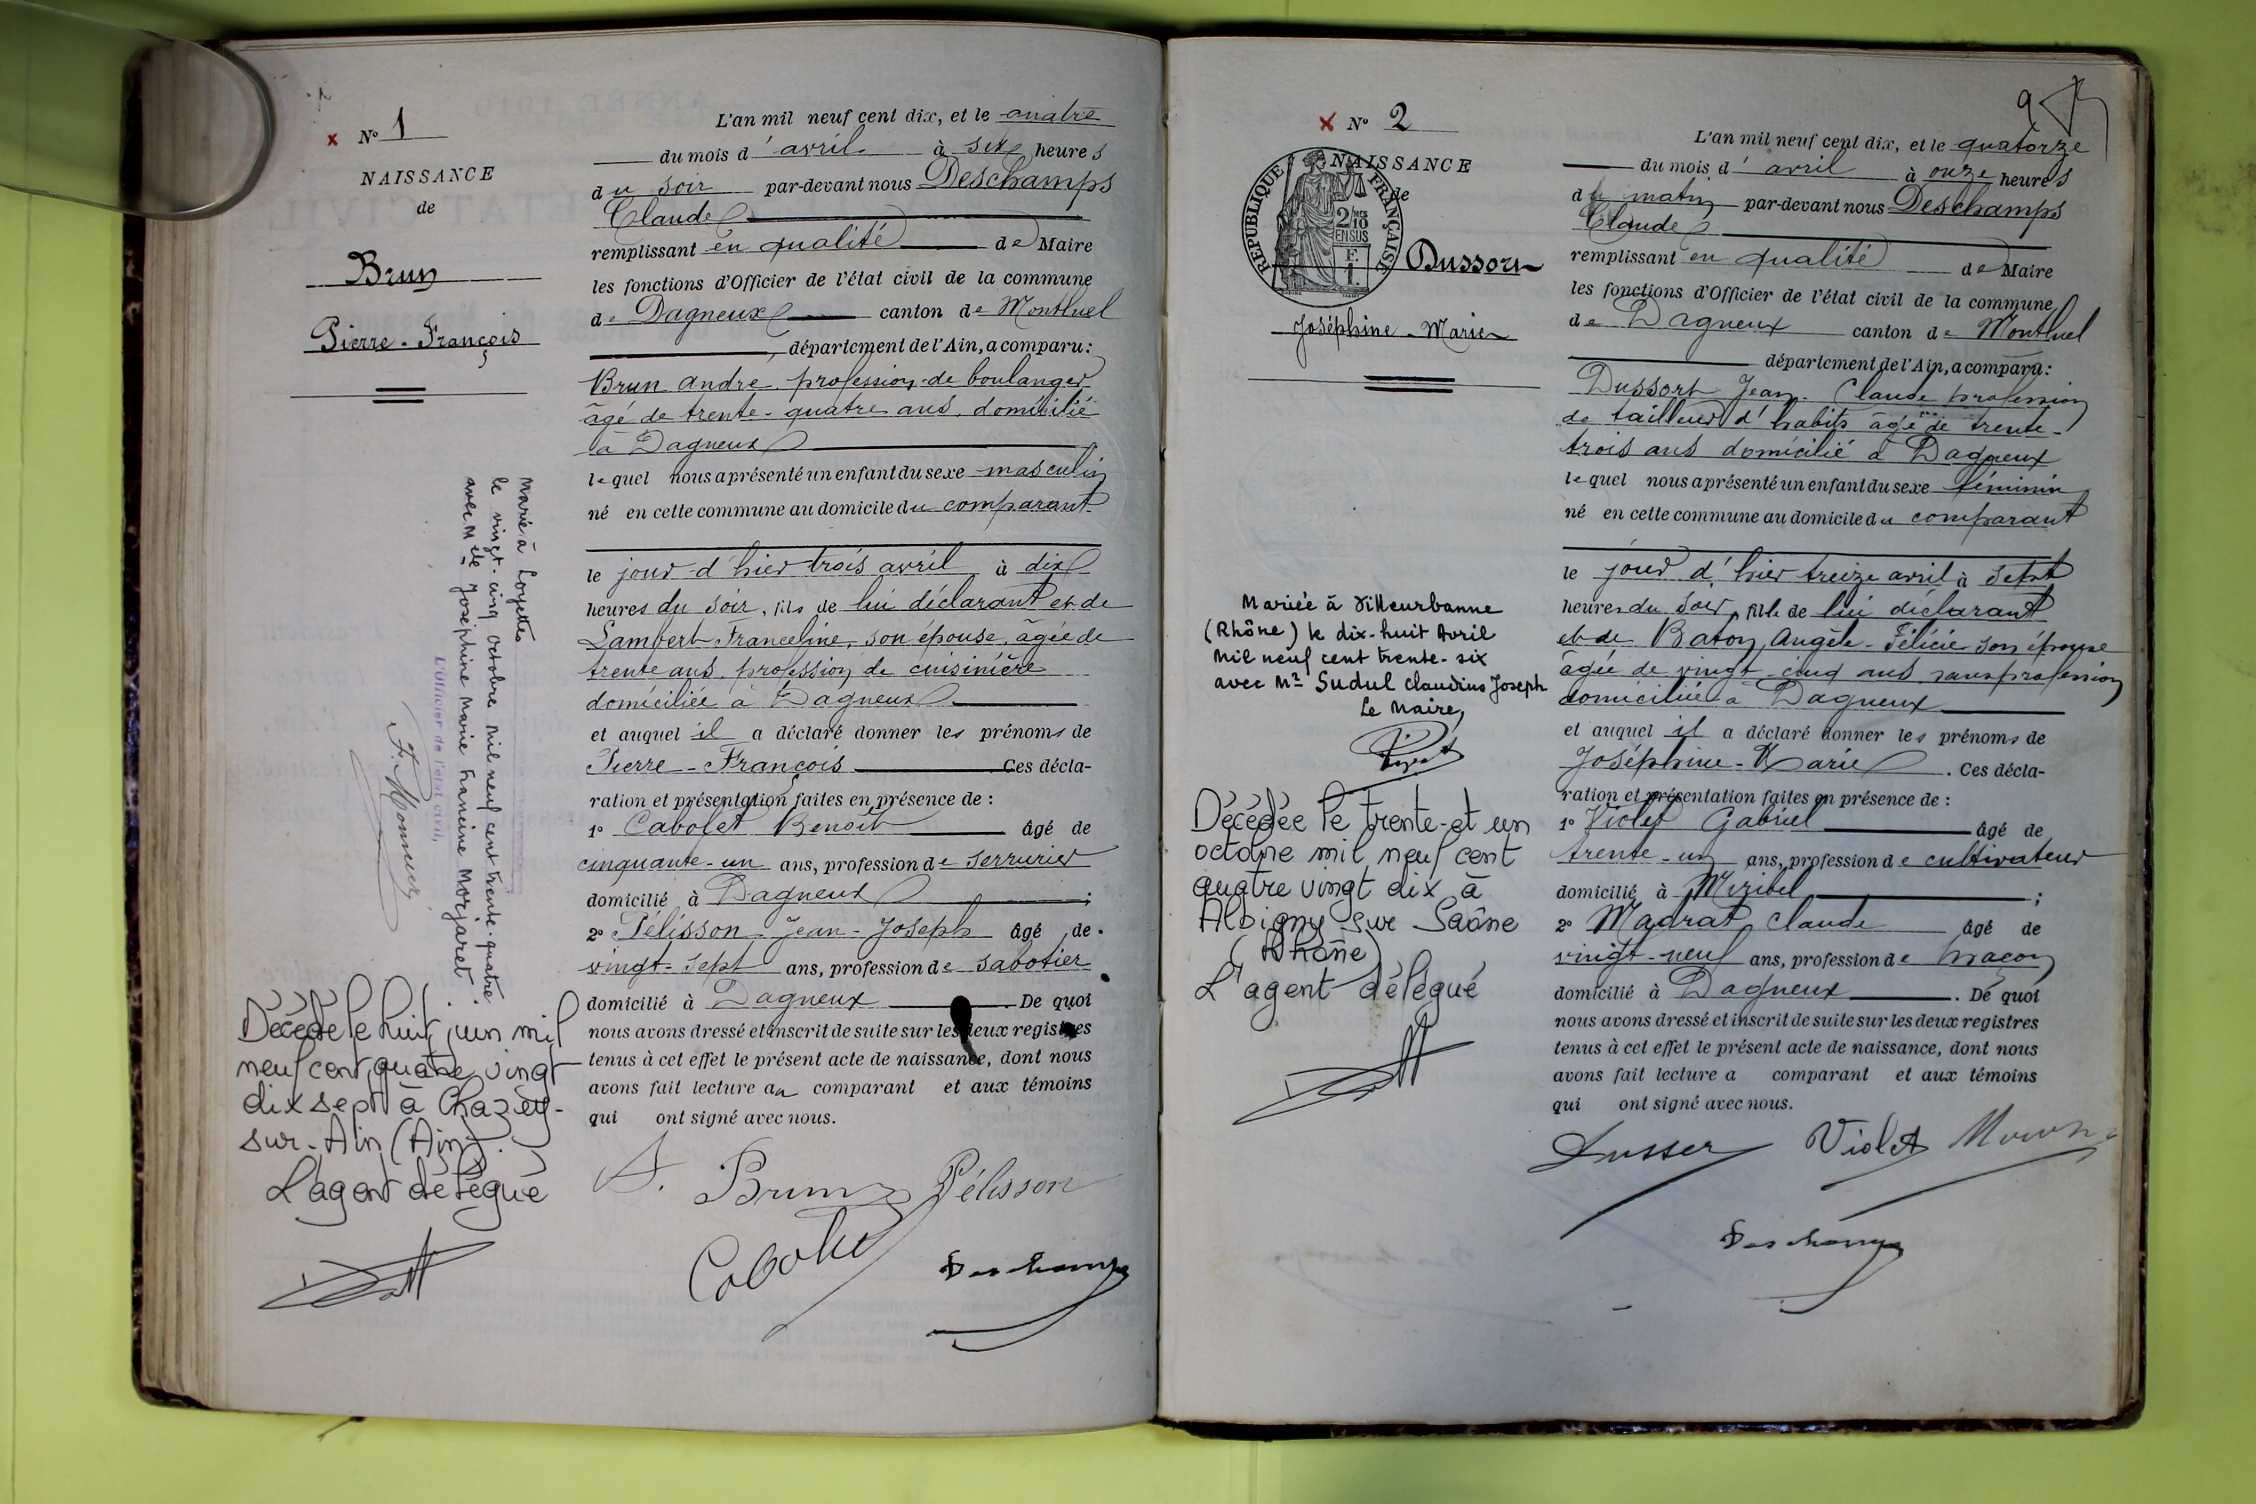 N° 1
NAISSANCE
de
Brun
Pierre-François
Marié à Loyettes
le vingt-cinq octobre mil neuf cent trente-quatre
avec Melle Joséphine Marie Francine Morjaret.
L'officier de l'état civil,
Décédé le huit juin mil
neuf cent quatre vingt
dix sept à Chazey-
sur-Ain (Ain).
L'agent délégué
L'an mil neuf cent dix, et le quatre
du mois d'avril à six heures
du soir par-devant nous Deschamps
Claude
remplissant en qualité de Maire
les fonctions d'Officier de l'état civil de la commune
de Dagneux canton de Montluel
département de l'Ain, a comparu:
Brun andré, profession de boulanger
âgé de trente-quatre ans, domicilié
à Dagneux
lequel nous a présenté un enfant du sexe masculin
né en cette commune au domicile du comparant
le jour d'hier trois avril à dix
heures du soir, fils de lui déclarant et de
Lambert Franceline, son épouse, âgée de
trente ans, profession de cuisinière
domiciliée à Dagneux
et auquel il a déclaré donner les prénoms de
Pierre-François Ces décla-
ration et présentation faites en présence de :
1° Cabolet Benoît âgé de
cinquante-un ans, profession de serrurier
domicilié à Dagneux ;
2° Pélisson Jean-Joseph âgé de
vingt-sept ans, profession de sabotier
domicilié à Dagneux . De quoi
nous avons dressé et inscrit de suite sur les deux registres
tenus à cet effet le présent acte de naissance, dont nous
avons fait lecture au comparant et aux témoins
qui ont signé avec nous.
A. Brun Pélisson
Cabolet Deschamps
9
N° 2
NAISSANCE
de
RÉPUBLIQUE FRANÇAISE
2/10
EN SUS
Dussort
Joséphine-Marie
Mariée à Villeurbanne
(Rhône) le dix-huit Avril
mil neuf cent trente-six
avec Mr Sudul Claudius Joseph
Le Maire,
Décédée le trente-et un
octobre mil neuf cent
quatre vingt dix à
Albigny-sur Saône
(Rhône)
L'agent délégué
L'an mil neuf cent dix, et le quatorze
du mois d'avril à onze heures
du matin par-devant nous Deschamps
Claude
remplissant en qualité de Maire
les fonctions d'Officier de l'état civil de la commune
de Dagneux canton de Montluel
département de l'Ain, a comparu:
Dussort Jean-Claude profession
de tailleur d'habits âgé de trente-
trois ans domicilié à Dagneux
lequel nous a présenté un enfant du sexe féminin
né en cette commune au domicile du comparant
le jour d'hier treize avril à sept
heures du soir, fille de lui déclarant
et de Baton, Angèle-Félicie son épouse
âgée de vingt-cinq ans, sans profession
domiciliée à Dagneux
et auquel il a déclaré donner les prénoms de
Joséphine-Marie . Ces décla-
ration et présentation faites en présence de :
1° Violet Gabriel âgé de
trente-un ans, profession de cultivateur
domicilié à Miribel ;
2° Madrat Claude âgé de
vingt-neuf ans, profession de maçon
domicilié à Dagneux . De quoi
nous avons dressé et inscrit de suite sur les deux registres
tenus à cet effet le présent acte de naissance, dont nous
avons fait lecture a comparant et aux témoins
qui ont signé avec nous.
Dusser Violet
Deschamps